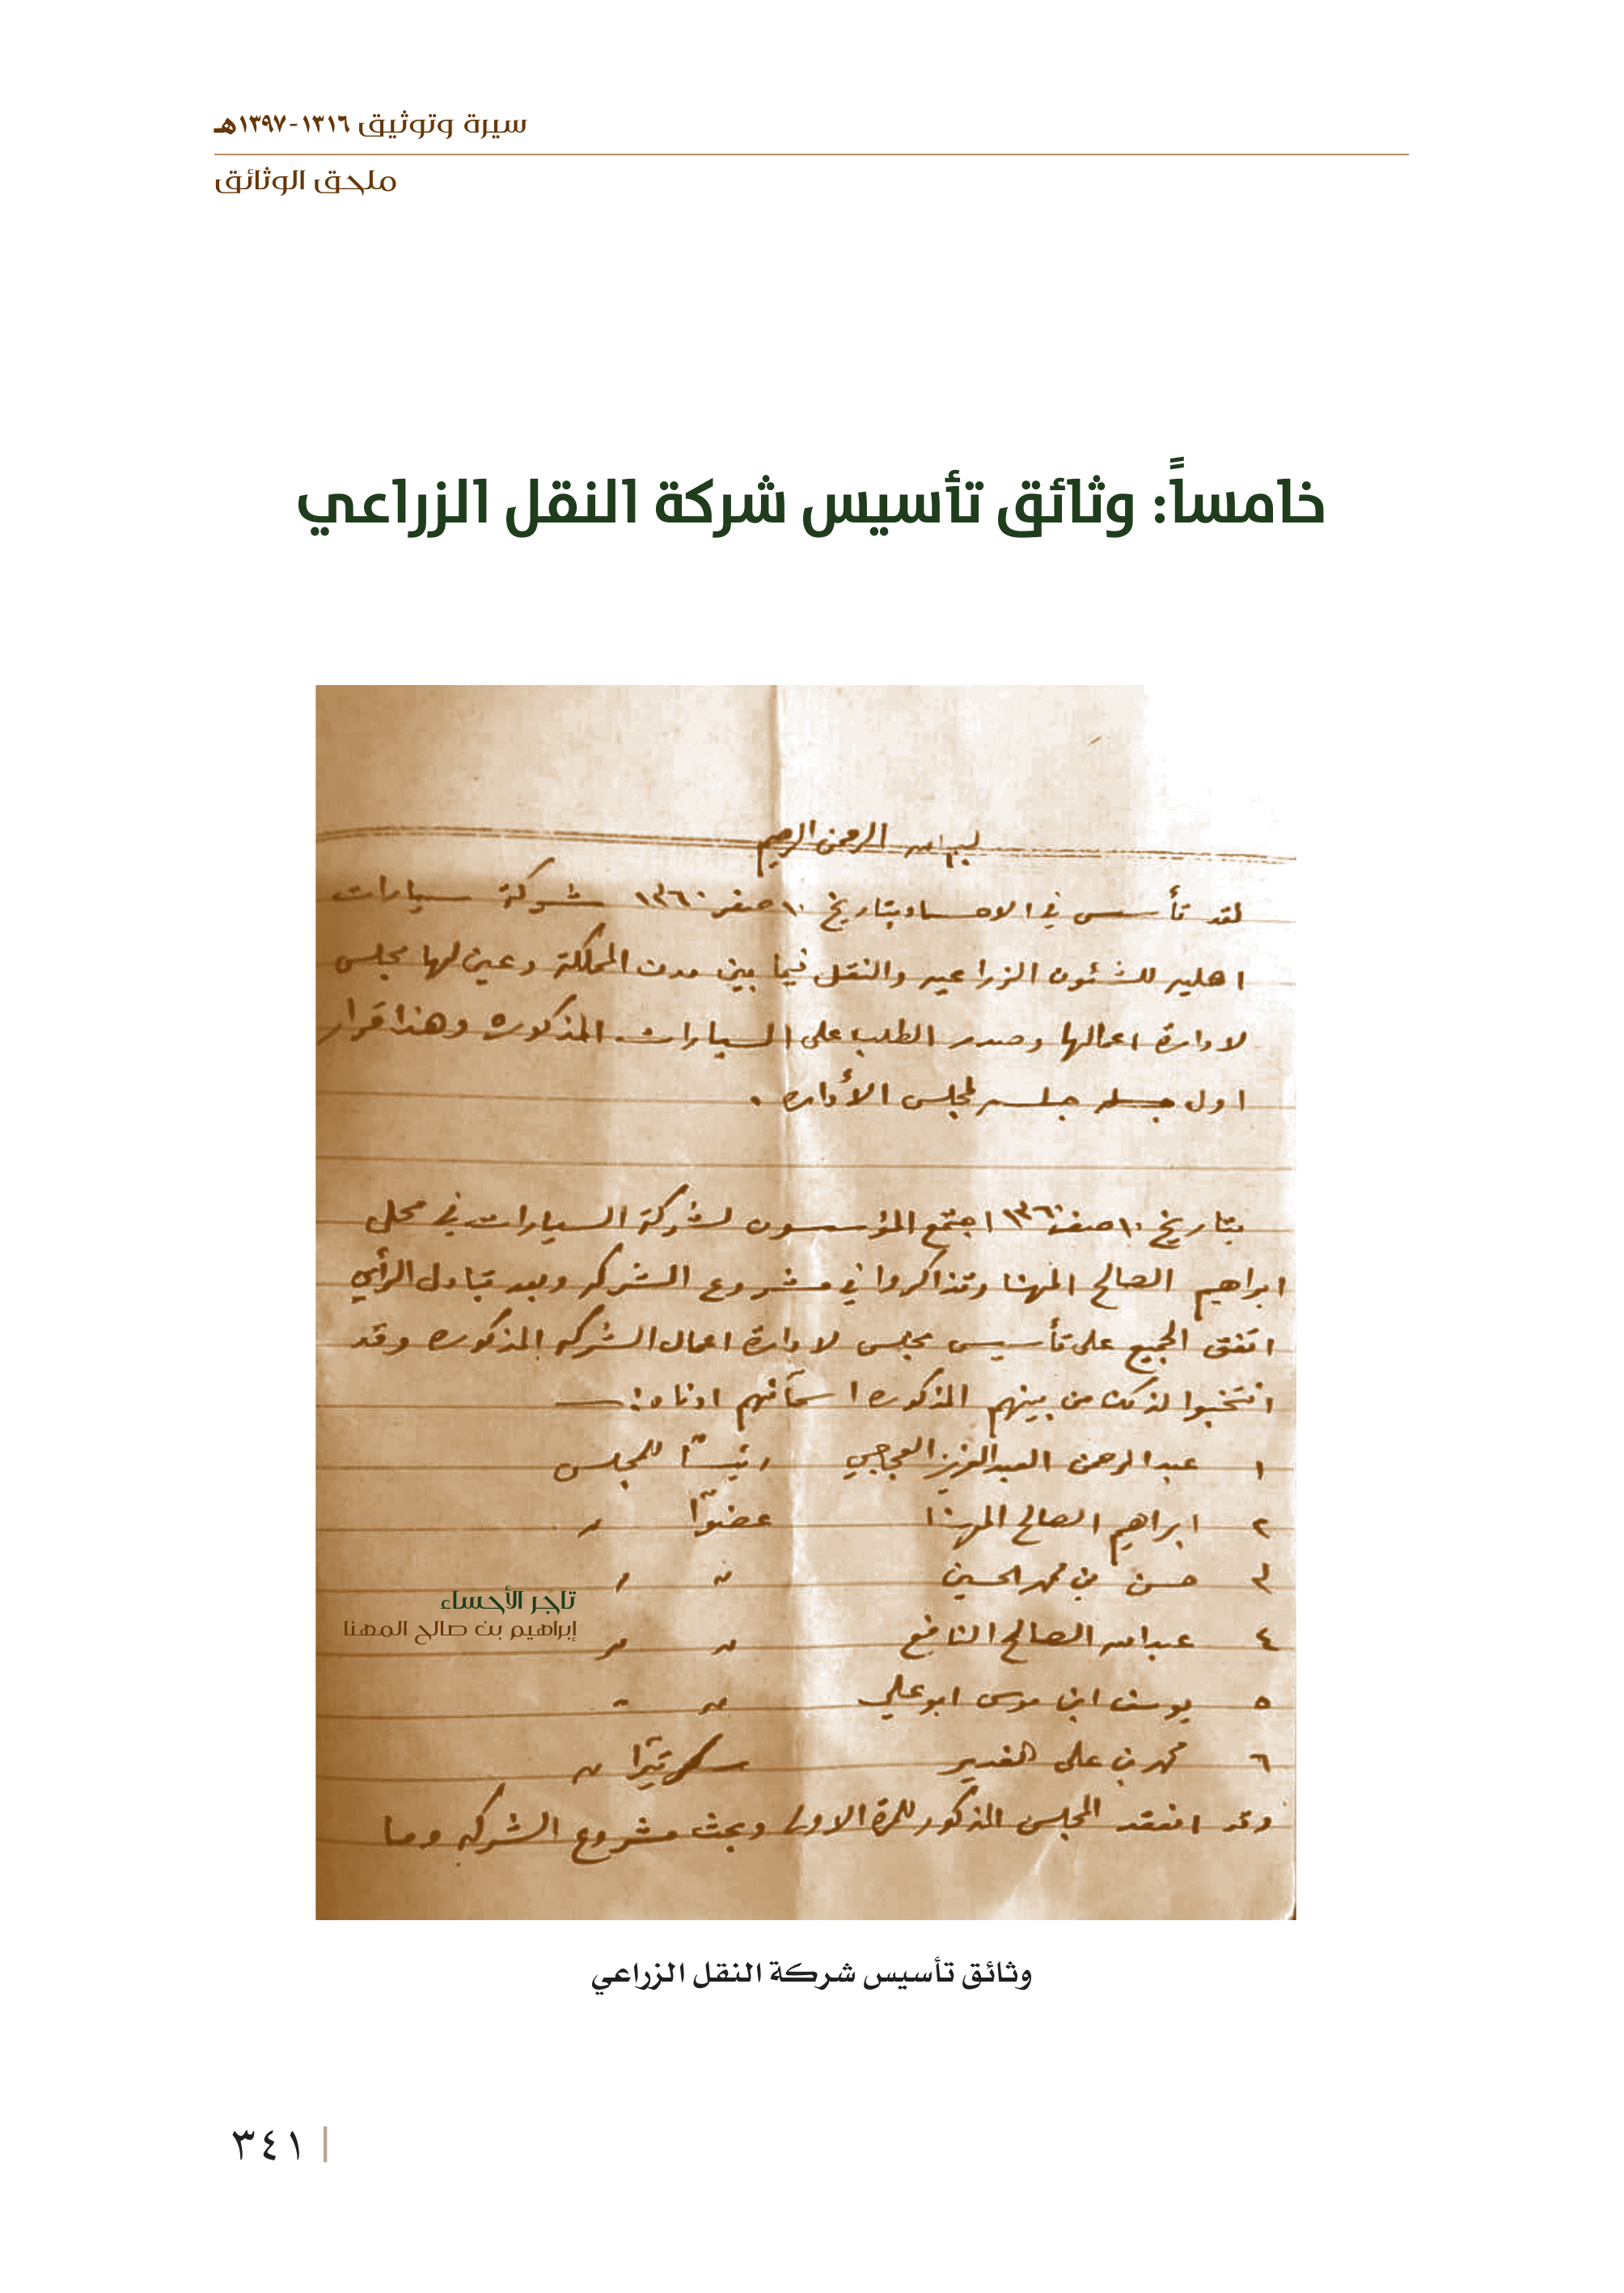 سيرة وتوثيق ١٣١٦-١٣٩٧هـ
ملحق الوثائق
خامساً: وثائق تأسيس شركة النقل الزراعي
بسم الله الرحمن الرحيم
لقد تأسس في الاحساء بتاريخ ١٠ صفر ١٣٦٠ شركة سيارات
اهليه للشئون الزراعيه والنقل فيما بين مدن المملكة وعين لها مجلس
لادارة اعمالها وصدر الطلب على السيارات المذكوره وهذا قرار
اول جلسه لمجلس الأداره .
بتاريخ ١٠ صفر ١٣٦٠ اجتمع المؤسسون لشركة السيارات في محل
ابراهيم الصالح المهنا وتذاكروا في مشروع الشركه وبعد تبادل الرأي
اتفق الجميع على تأسيس مجلس لادارة اعمال الشركه المذكوره وقد
انتخبوا لذلك من بينهم المذكوره اسمآئهم ادناه :ـ
١ عبدالرحمن العبدالعزيز العجاجي رئيساً للمجلس
٢ ابراهيم الصالح المهنا عضوًا "
٣ حسن بن محمد الحسين " "
٤ عبدالله الصالح النافع " "
٥ يوسف ابن موسى ابو علي " "
٦ محمد بن علي الغدير سكرتيرًا "
وقد انعقد المجلس المذكور للمرة الاولى وبحث مشروع الشركه وما
تاجر الأحساء
إبراهيم بن صالح المهنا
وثائق تأسيس شركة النقل الزراعي
٣٤١